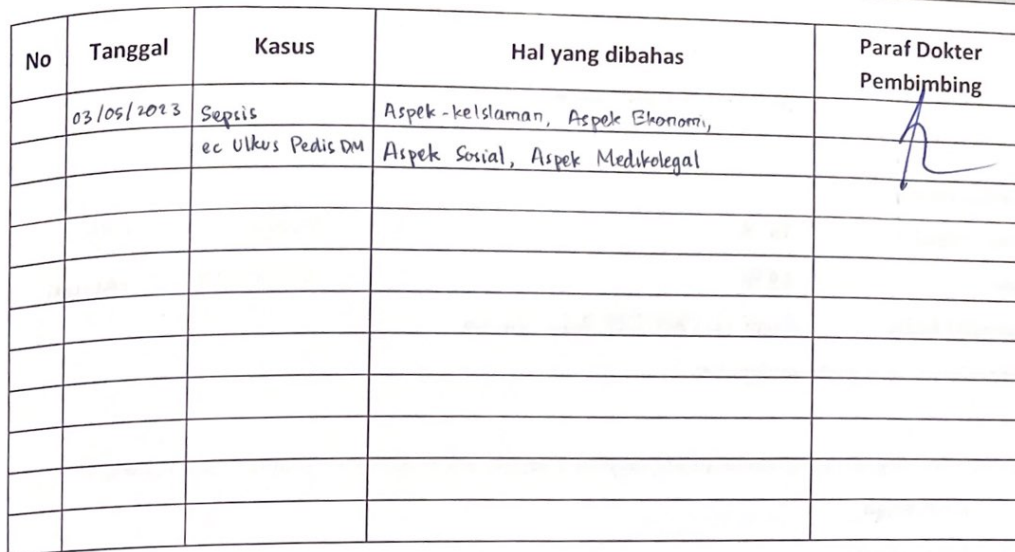 No Tanggal Kasus Hal yang dibahas Paraf Dokter
Pembimbing
03/05/2023 Sepsis Aspek-keIslaman, Aspek Ekonomi,
ec Ulkus Pedis DM Aspek Sosial, Aspek Medikolegal